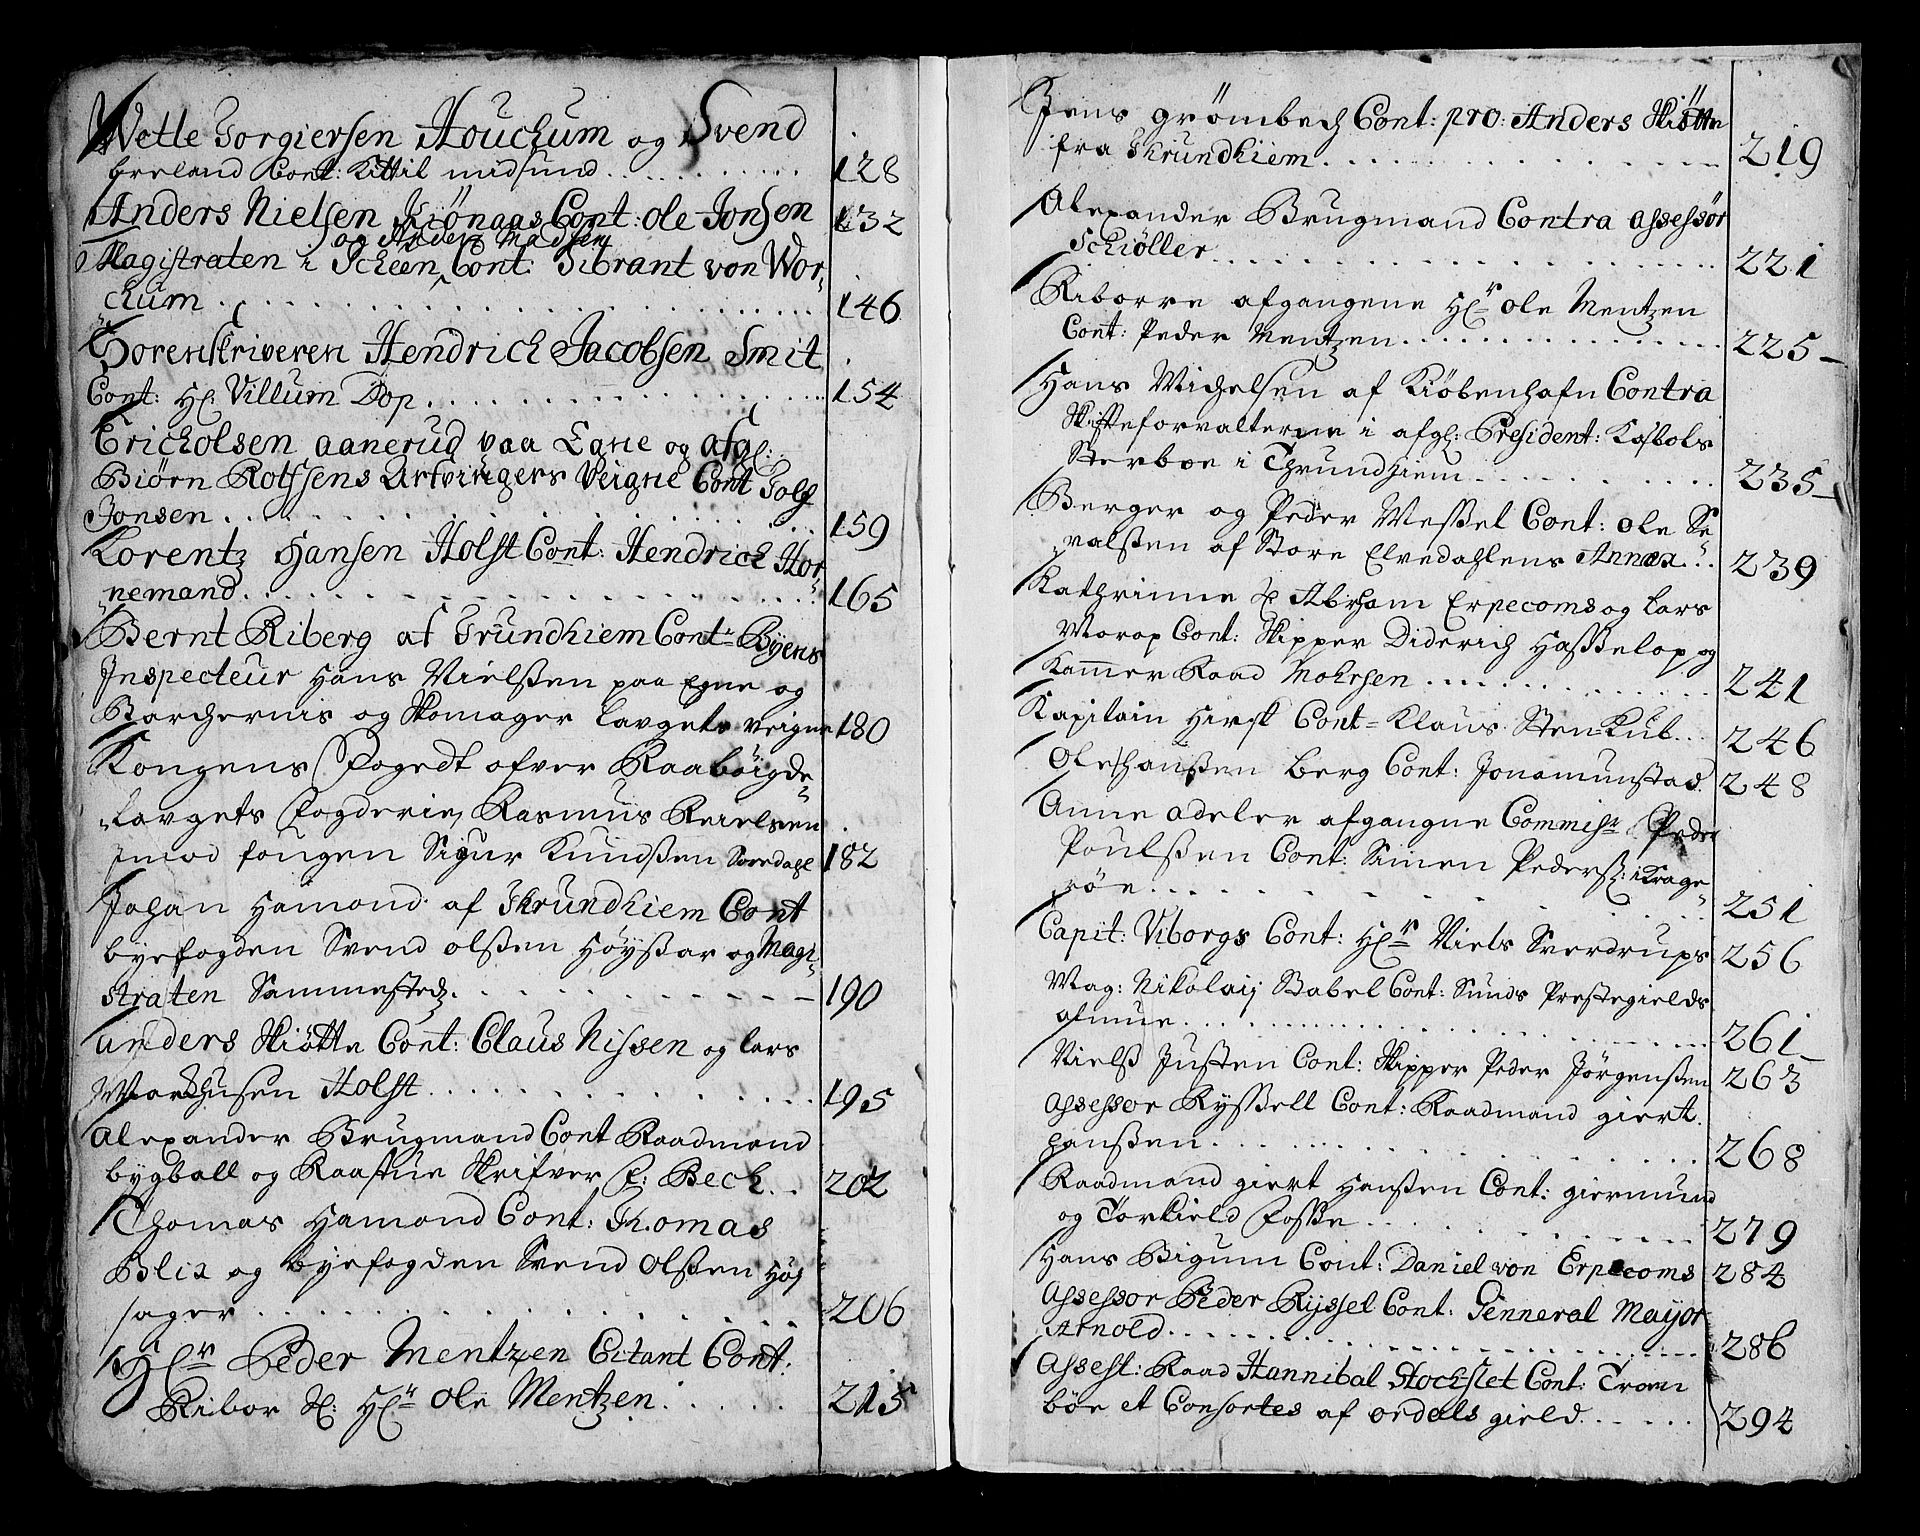 Wetle Torgiersen Houchum og Svend
Ereland Cont: Kittil midsund . . . 128
Anders Nielsen Kiönaas Cont: ole Jonsen 132
og Anders Madsen
Magistraten i Scheen Cont: Sibrant von Wor-
chum . . . 146
Sorenskriveren Hendrich Jacobsen Smit
Cont: Hl: Villum Dop . . . 154
Erich olsen aanerud paa Egne og afgl:
Biørn Rolfsens Arfvingers Veigne Cont
Jonsen . . . 159
Lorentz Hansen Holst Cont: Hendrich Hor-
nemand . . . 165
Bernt Riberg af Trundhiem Cont: Byens
Inspecteur Hans Nielsen paa Egne og
Barchernis og Skomager Lavgets veigne 180
Kongens Fogedt ofver Raaböigde-
lavgets Fogderie, Rasmus
Imod fangen Sigur Knudsen 182
Johan Hamond af Thrundhiem Cont
byefogden Svend olsen Höysær og Magi-
straten Sammesteds . . . 190
anders Skiøtte Cont: Claus Nissen og Lars
Holst . . . 195
Alexander Brugmand Cont Raadmand
bygball og Raastue Skrifver P: Beck . . 202
Thomas Hamond Cont: Thomas
Blix og byefogden Svend Olsen Höj
sager . . . 206
Hr Peder Mentzen Citant Cont:
Ribor Sl: Hr ole Mentzen . . . 215
Jens grömbech Cont: pro: Anders Skiötte
fra Thrundhiem . . . 219
Alexander Brugmand Contra assessör
Schiøller . . . 221
Riborre afgangene Hr ole Mentzen
Cont: Peder Mentzen . . . 225
Hans Michelsen af Kiöbenhafn Contra
Skifteforvalterne i afgl: President: Kasbols
Sterboe i Thrundhiem . . . 235
Berger og Peder Wessel Cont: ole Se-
valssen af Store Elvedahlens Annex . . 239
Kathrinne Sl Abrham Erpecoms og Lars
Morop Cont: Skipper Diderich Hasselop og
Kammer Raad Mohrsen . . . 241
Kapitain Hirsk Cont= Klaus Stenkub . . 246
Ole Hanssen berg Cont: Jonamunstad 248
Anne adeler afgangne Commissr Peder
Poulssen Cont: Simen Pederss: i Krage-
röe . . . 251
Capit: Viborgs Cont: Hr Niels Sverdrups 256
Mag: Nikolaij Babel Cont: Sunds Prestegields
almue . . . 261
Niels Justen Cont: Skipper Peder Jörgenssen 263
Assessor Ryssell Cont: Raadmand giert
Hanssen . . . 268
Raadmand giert Hanssen Cont: giermund
og Torkield Fosse . . . 279
Hans Bigum Cont: Daniel von Erpecoms 284
Assessor Peder Ryssel Cont: Genneral Mayor
Arnold . . . 286
Assest: Raad Hannibal Stochflet Cont: Trom
böe et Consortes af ordals gield . . . 294